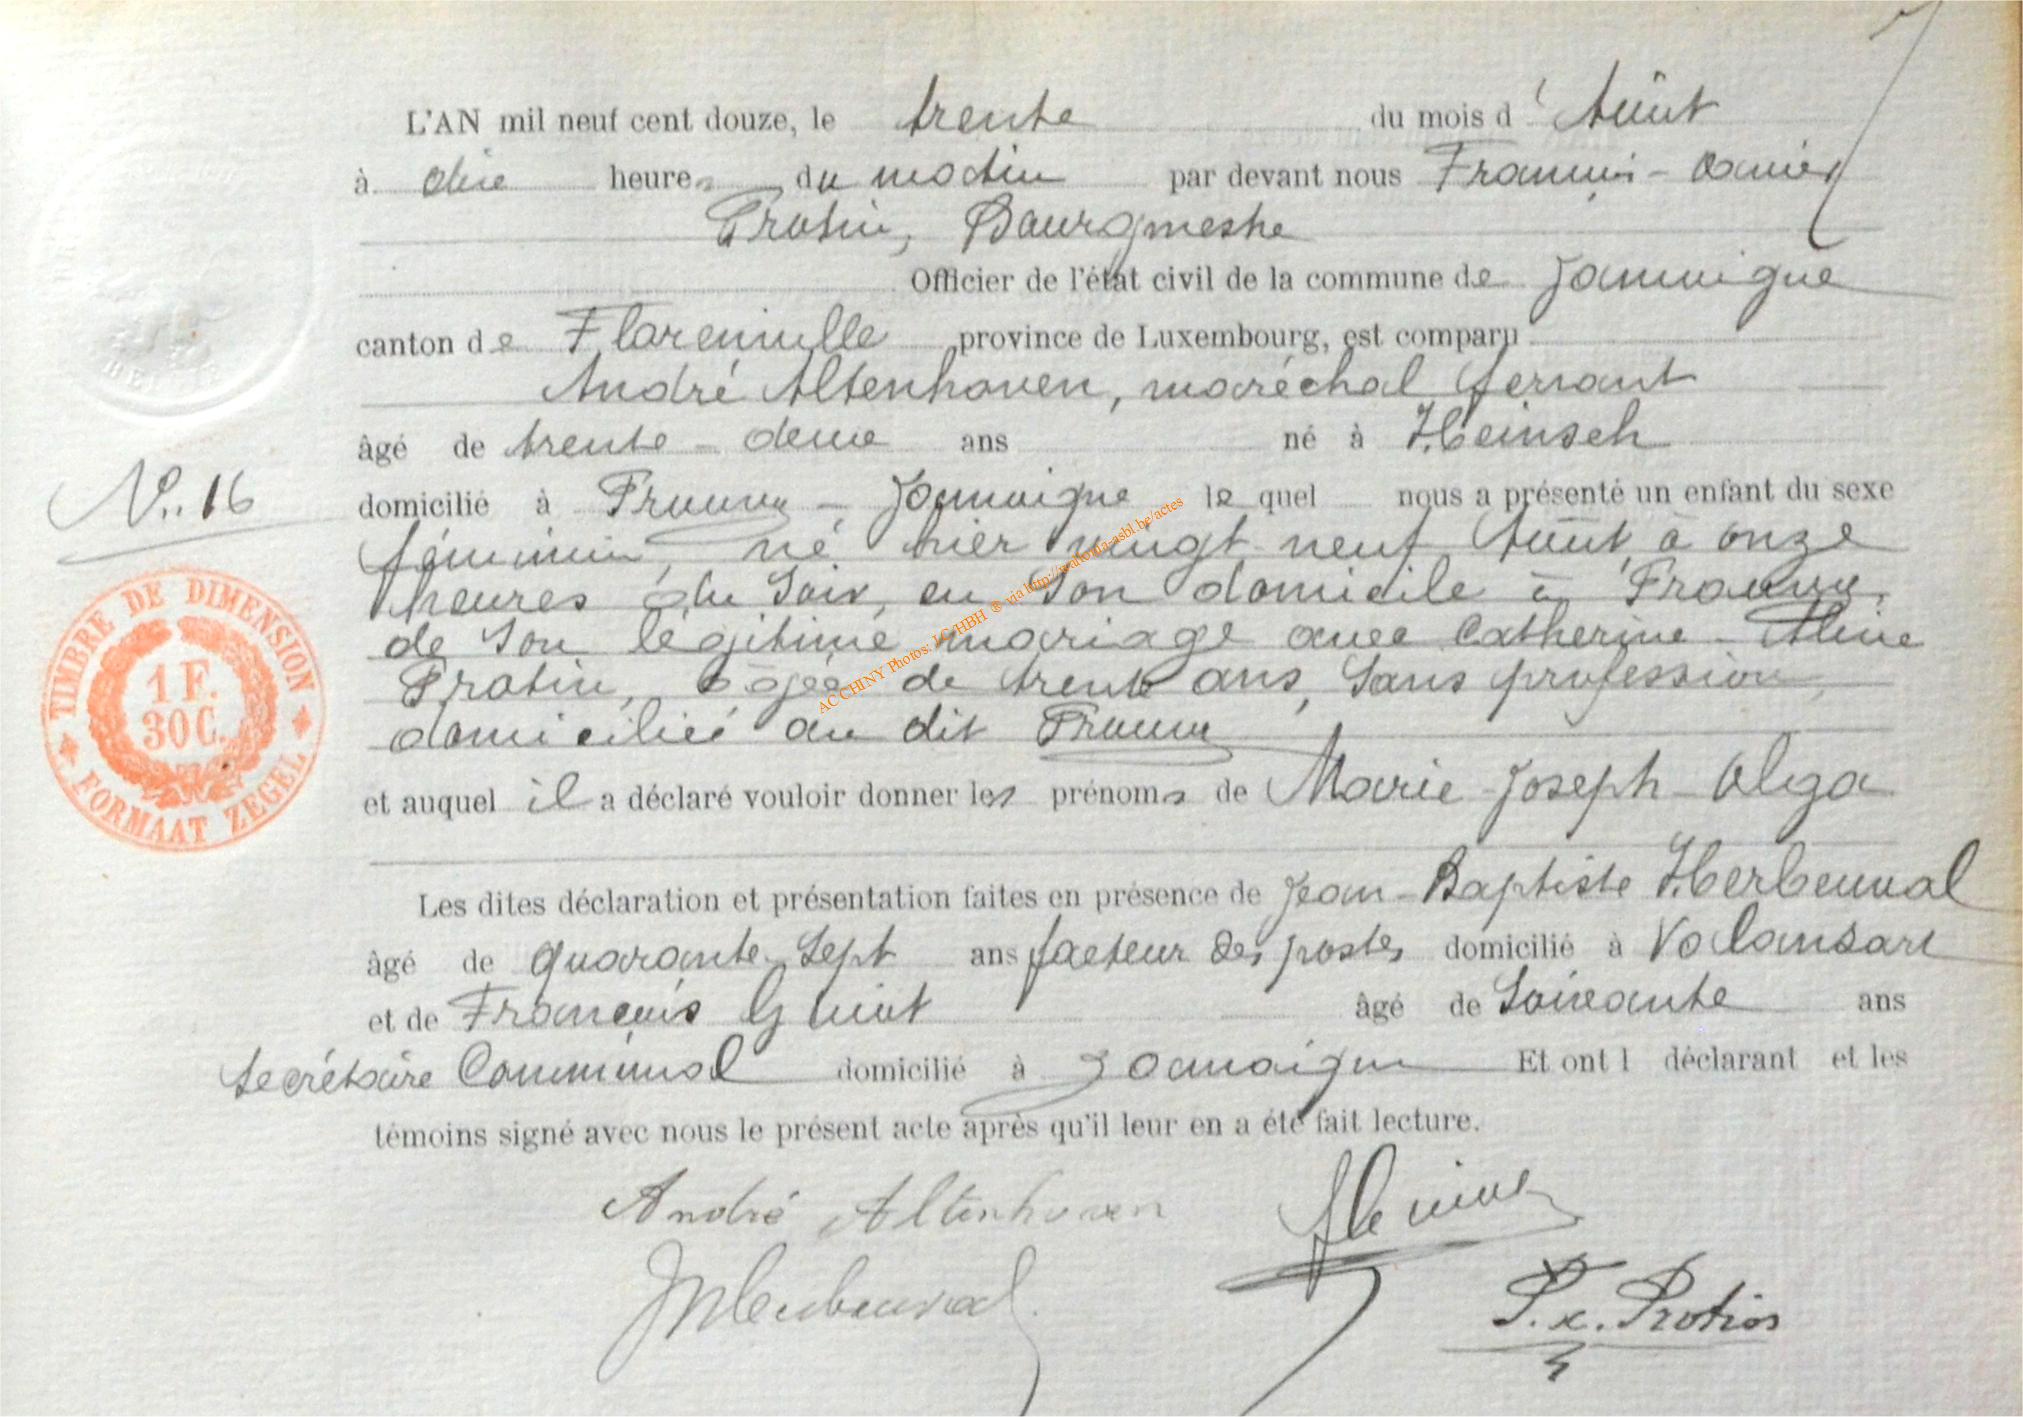 L'AN mil neuf cent douze, le trente du mois d'Août
à dix heures du matin par devant nous François-Xavier
Protin, Bourgmestre
Officier de l'état civil de la commune de Jamoigne
canton de Florenville province de Luxembourg, est comparu
André Altenhoven, maréchal ferrant
âgé de trente-deux ans né à Heinsch
domicilié à Prouvy-Jamoigne lequel nous a présenté un enfant du sexe
N°. 16
féminin, né hier vingt neuf Août, à onze
heures du soir, en son domicile à Prouvy,
de son légitime mariage avec Catherine-Aline
Protin, âgée de trente ans, sans profession,
domiciliée au dit Prouvy
et auquel il a déclaré vouloir donner les prénoms de Marie-Joseph-Olga
Les dites déclaration et présentation faites en présence de Jean-Baptiste Herbeuval
âgé de quarante-sept ans facteur des postes domicilié à Valansart
et de François Guiot âgé de soixante ans
secrétaire Communal domicilié à Jamoigne Et ont l déclarant et les
témoins signé avec nous le présent acte après qu'il leur en a été fait lecture.
André Altenhoven
JB Herbeuval
F. x. Protin
TIMBRE DE DIMENSION
1 F.
30 C.
FORMAAT ZEGEL
AC CHINY Photos: J.C/HBH ® via http://wallonia-asbl.be/actes